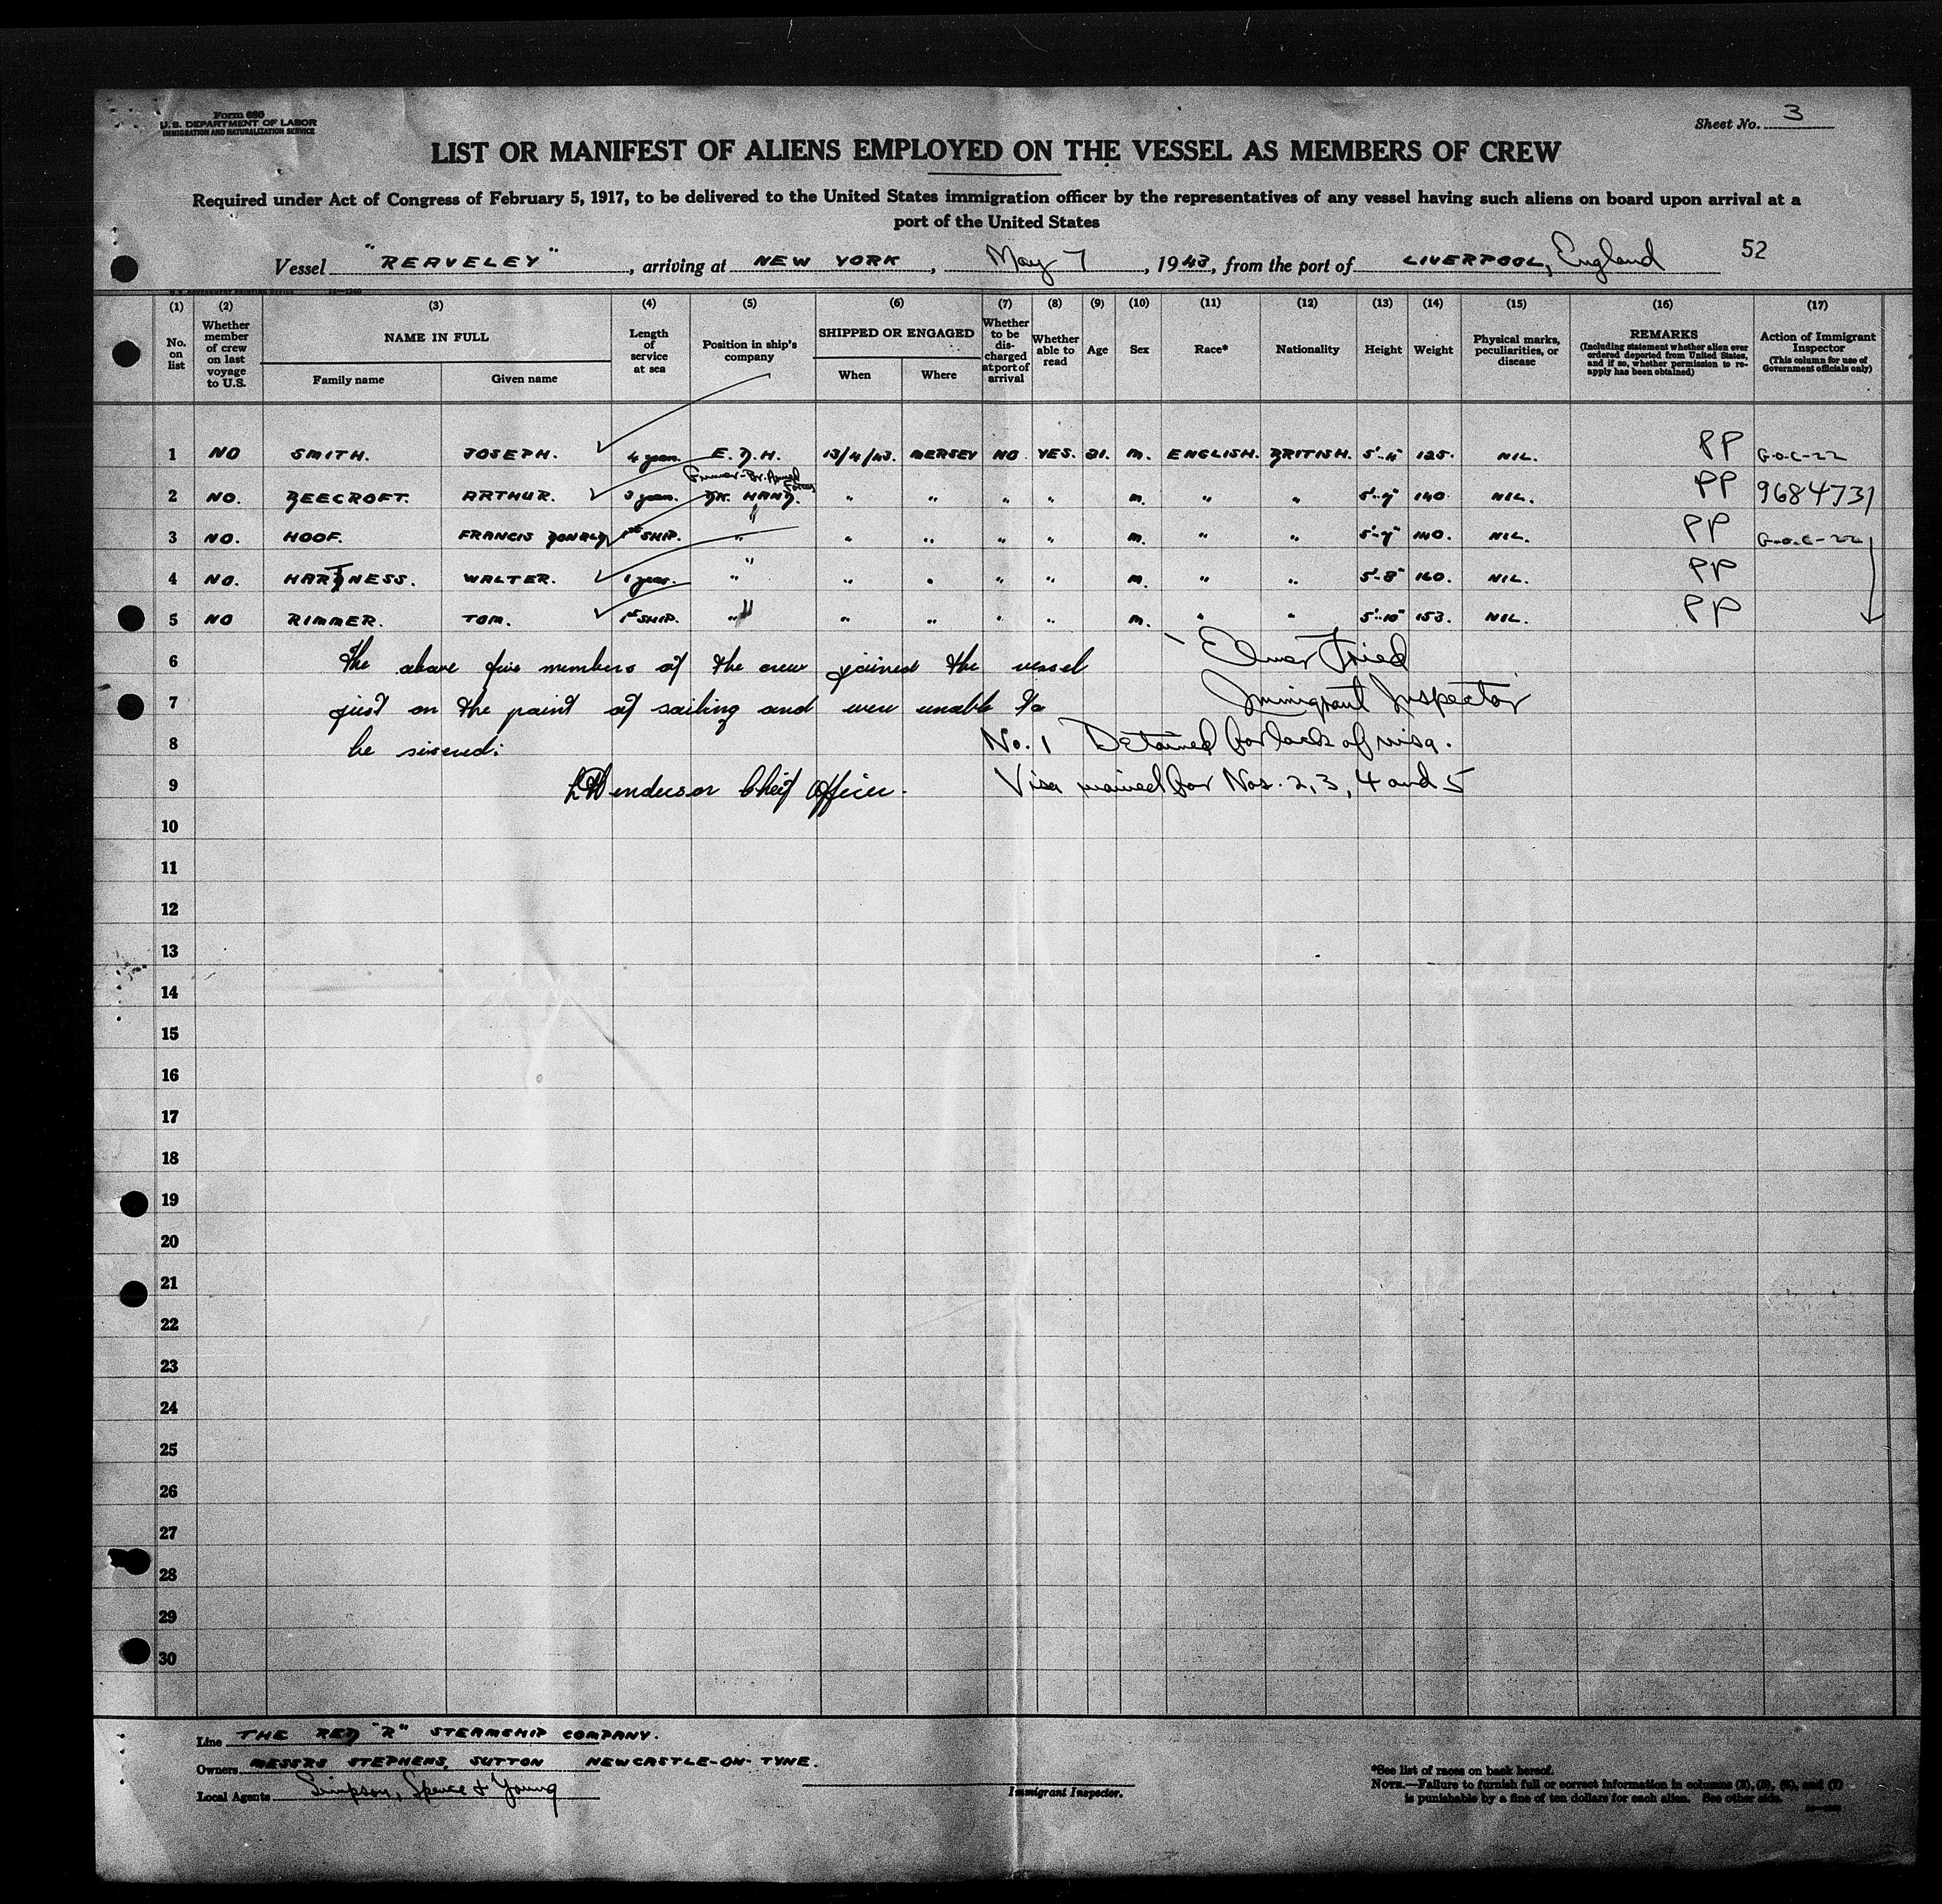 Form 680
U.S. DEPARTMENT OF LABOR
IMMIGRATION AND NATURALIZATION SERVICE
Sheet No. 3
LIST OR MANIFEST OF ALIENS EMPLOYED ON THE VESSEL AS MEMBERS OF CREW
Required under Act of Congress of February 5, 1917, to be delivered to the United States immigration officer by the representatives of any vessel having such aliens on board upon arrival at a
port of the United States
Vessel "REAVELEY", arriving at NEW YORK, May 7, 1943, from the port of LIVERPOOL, England 52
(1) (2) (3) (4) (5) (6) (7) (8) (9) (10) (11) (12) (13) (14) (15) (16) (17)
No. on list
Whether member of crew on last voyage to U.S.
NAME IN FULL
Family name Given name
Length of service at sea
Position in ship's company
SHIPPED OR ENGAGED
When Where
Whether to be discharged at port of arrival
Whether able to read
Age
Sex
Race*
Nationality
Height
Weight
Physical marks, peculiarities, or disease
REMARKS
(Including statement whether alien ever ordered deported from United States, and if so, whether permission to re-apply has been obtained)
Action of Immigrant Inspector
(This column for use of Government officials only)
1 NO SMITH. JOSEPH. 4 years. E.D.H. 13/4/43. MERSEY NO YES. 21. M. ENGLISH. BRITISH. 5'-4" 125. NIL. PP G.O.C-22
Gunner-Br. Armed Forces
2 NO. BEECROFT. ARTHUR. 3 years. DK. HAND. " " " " M. " " 5'-7" 140. NIL. PP 9684731
3 NO. HOOF. FRANCIS DONALD 1st SHIP. " " " " " M. " " 5'-7" 140. NIL. PP G.O.C-22
4 NO. HARTNESS. WALTER. 1 year. " " " " " M. " " 5'-8" 160. NIL. PP
5 NO RIMMER. TOM. 1st SHIP. " " " " " M. " " 5'-10" 153. NIL. PP
6 The above five members of the crew joined the vessel Elmer Fried
7 just on the point of sailing and were unable to Immigrant Inspector
8 be visened: No. 1 Detained for lack of visa.
9 Henderson Chief Officer. Visa waived for Nos. 2, 3, 4 and 5
10
11
12
13
14
15
16
17
18
19
20
21
22
23
24
25
26
27
28
29
30
Line THE RED "R" STEAMSHIP COMPANY.
Owners MESSRS STEPHENS, SUTTON NEWCASTLE-ON-TYNE.
Local Agents Simpson, Spence & Young
Immigrant Inspector.
*See list of races on back hereof.
NOTE.—Failure to furnish full or correct information in columns (2), (3), (6), and (7)
is punishable by a fine of ten dollars for each alien. See other side.